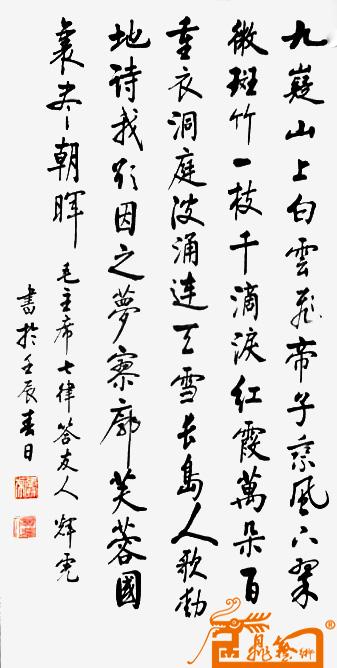 九嶷山上白雲飛帝子乘風下翠
微斑竹一枝千滴淚紅霞萬朵百
重衣洞庭波涌連天雪長島人歌動
地詩我欲因之夢寥廓芙蓉國
裏盡朝暉
毛主席七律答友人 輝
書於壬辰春日